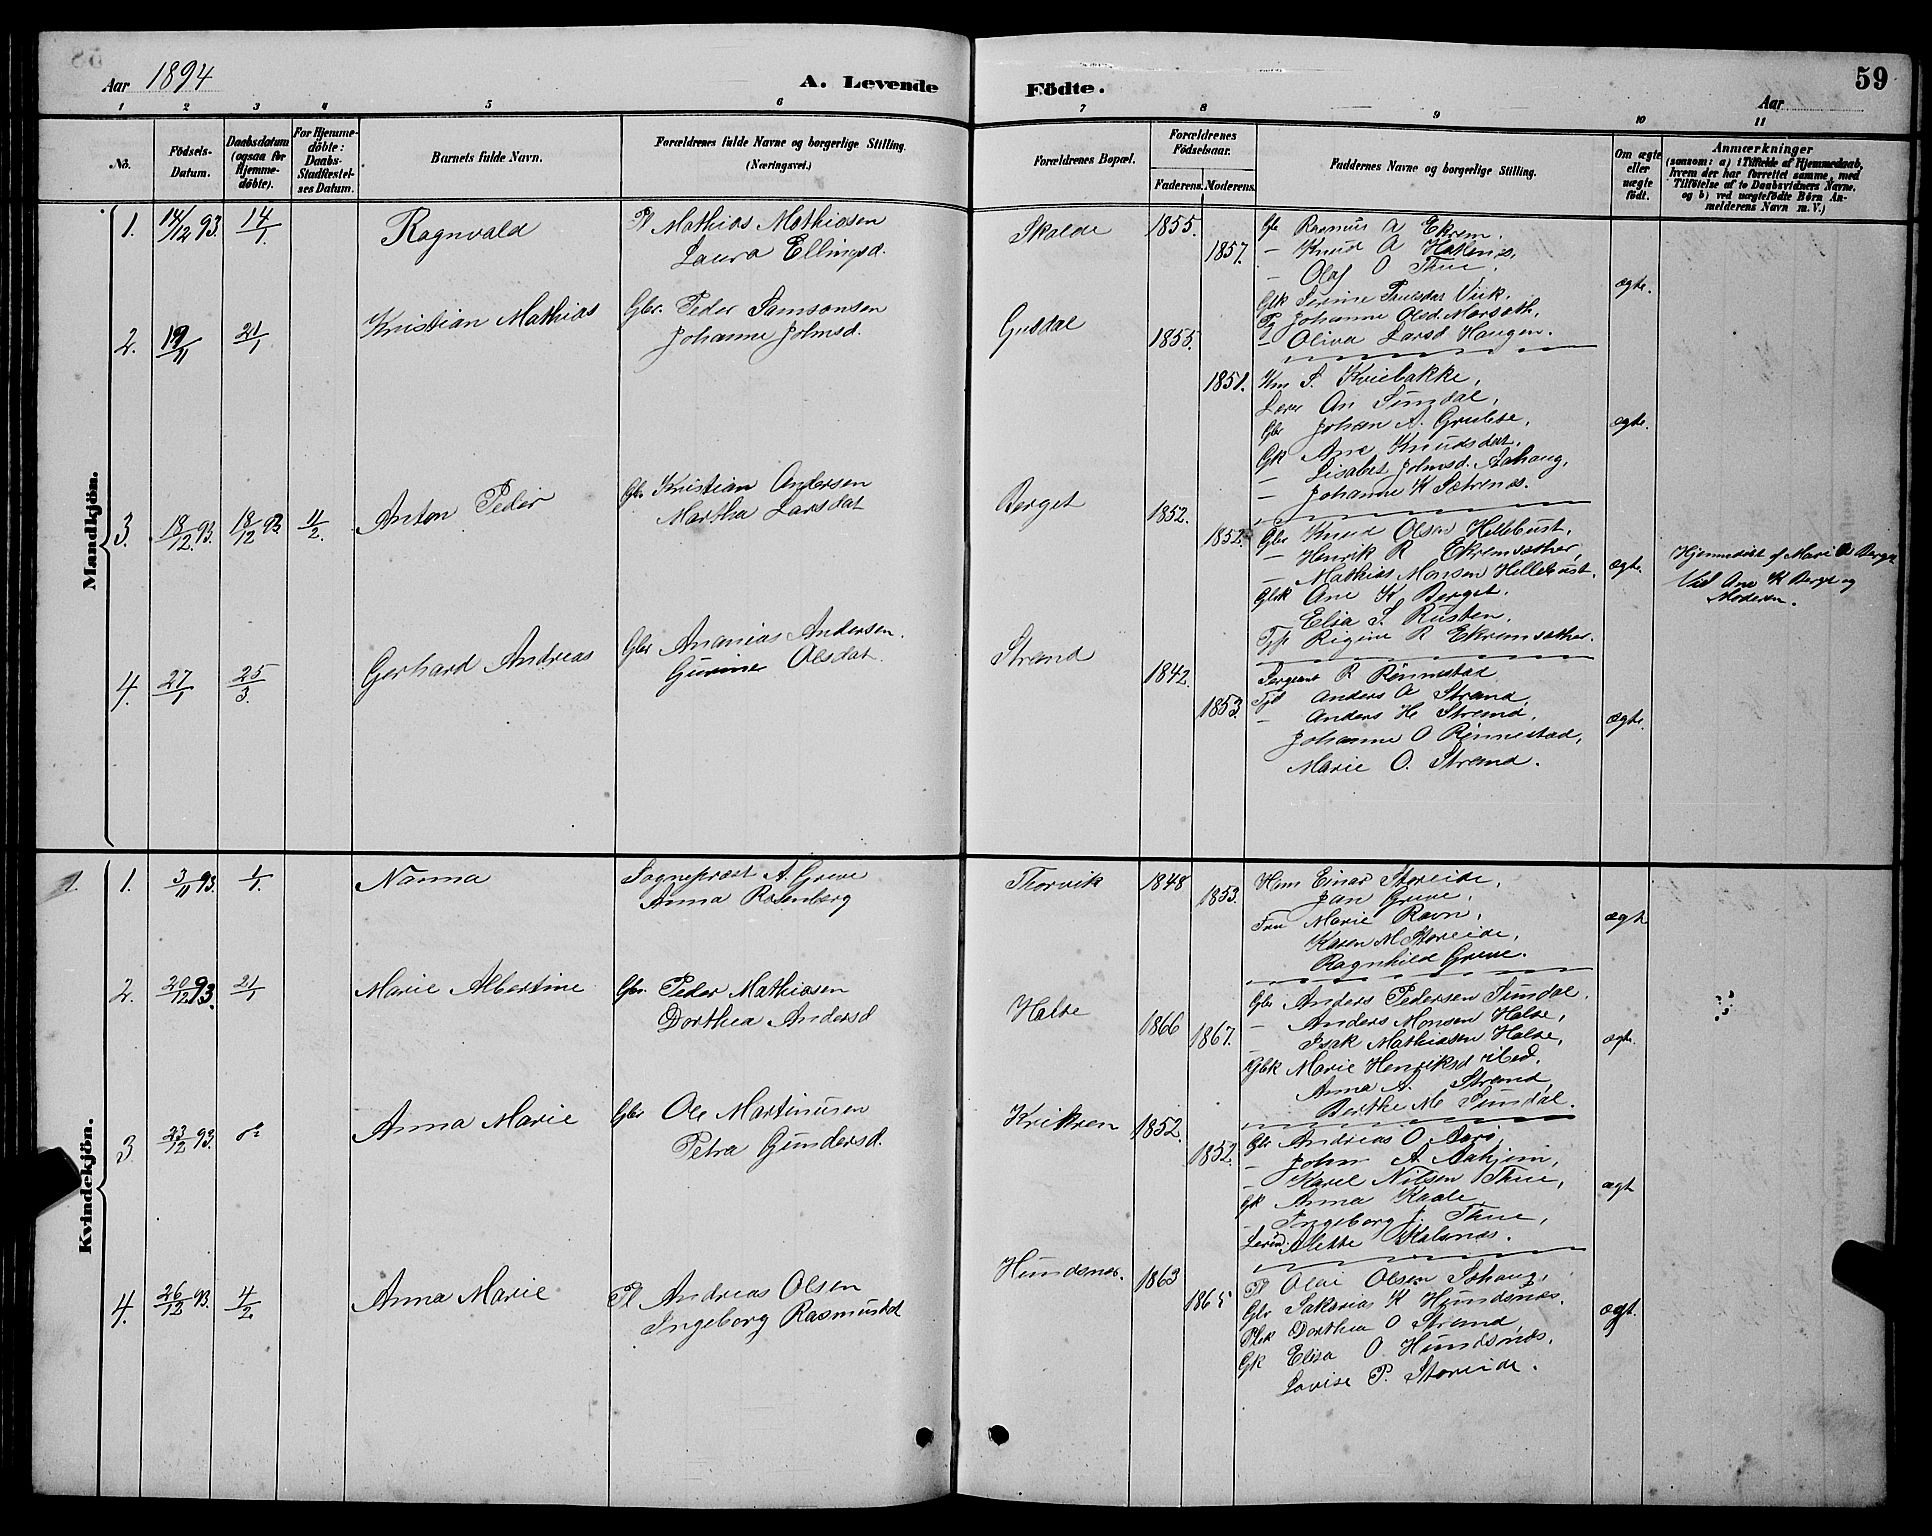 Aar 1894
A. Levende Födte.
59
Aar
1 2 3 4 5 6 7 8 9 10 11
No.
Födsels-Datum.
Daabsdatum (ogsaa for Hjemme-döbte).
For Hjemme-döbte: Daabs-Stadfæstel-ses Datum.
Barnets fulde Navn.
Forældrenes fulde Navne og borgerlige Stilling. (Næringsvei.)
Forældrenes Bopæl.
Forældrenes Födselsaar.
Faderens. Moderens.
Faddernes Navne og borgerlige Stilling.
Om ægte eller uægte födt.
Anmærkninger
(saasom: a) i Tilfælde af Hjemmedaab, hvem der har forrettet samme, med Tilföielse af to Daabsvidners Navne, og b) ved uægtefödte Börn Anmelderens Navn m. V.)
Mandkjön.
1. 14/12 93. 14/1 Ragnvald
Pl Mathias Mathiasen
Laura Ellingsd.
Skalde 1855. 1857.
Gb Rasmus A Ekrem.
- Knud A Hatlenæs,
- Olaf O Thue.
Gbk Serine Paulsdat Viik.
Pg Johanne Olsd. Morsøth,
- Oliva Larsd Haugen.
ægte.
2. 19/11 21/1 Kristian Mathias
Gbr. Peder Samsonsen
Johanne Johnsd.
Gusdal 1855. 1851.
Km S. Kviebakke,
Lærer An Sundal,
Gbr Johan A. Grubse,
Gk Ane Knudsdat,
- Lisabet Johnsd. Aahaug,
- Johanne K Sætrenæs.
ægte.
3. 18/12 93. 18/12 93. 11/2. Anton Peder
Gbr Kristian Andersen
Martha Larsdat
Berget 1852. 1852.
Gbr Knud Olsen Hellebust,
- Henrik R Ekremsæther,
- Mathias Monsen Hellebust.
Gbk Ane K Berget.
Elsa S. Rusten,
Tjp Rigine R Ekremsæther.
ægte.
Hjemmedöbt af Mari A Berget
Vid Ane K Berget og
Moderen.
4. 27/1 25/3. Gerhard Andreas
Gbr Ananias Andersen.
Gurine Olsdat.
Strand 1842. 1853.
Sergeant R Rönnestad
Tjd Anders A Strand,
- Anders H Strand,
Johanne O Rønnestad,
Marie O. Strand.
ægte.
Kvindekjön.
1. 3/11 93. 1/1. Nanna
Sognepræst A. Greve
Anna Rosenberg
Thorvik 1848 1853.
Hrm Einar Storeide,
Jan Greve,
Fru Marie Ravn,
Karen M Storeide,
Ragnhild Greve.
ægte
2. 20/12 93. 21/1 Marie Albertine
Gbr. Peder Mathiasen
Dorthea Andersd
Halse 1866 1867.
Gbr Anders Pedersen Sundal.
- Anders Monsen Halse,
- Isak Mathiasen Halse,
Gbk Marie Henriksd ibed.
Anna A. Strand,
Berthe M Sundal.
ægte.
3. 23/12 93. do Anna Marie
Gbr Ole Martinusen
Petra Gundersd.
Krikren 1852. 1852.
Gbr Andreas O Aarö,
- John A Aahjem,
- Karel Nilsen Thue,
Gk Anna Kaale,
- Ingeborg J. Thue,
Lærerd. Alette Skalsnæs.
ægt
4. 26/12 93. 4/2 Anna Marie
Pl Andreas Olsen
Ingeborg Rasmusdt
Hundsnes. 1863 1865
Pl Olai Olsen Johaug,
Gbr Sakarias K Hundsnæs.
Plek Dorthea O Strand,
Gk Elisa O. Hundsnæs.
Lovise P. Storeide.
ægt.